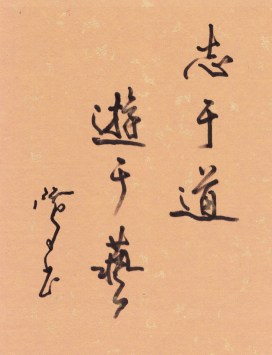 志于道
遊于藝